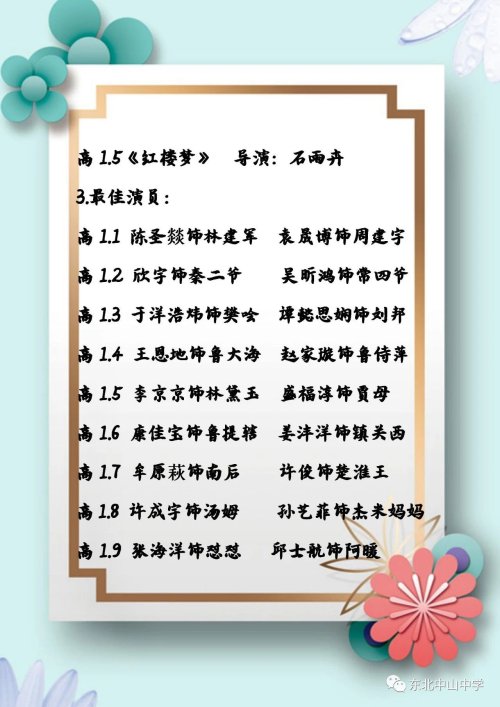 高 1.5《红楼梦》 导演：石雨卉
3.最佳演员：
高 1.1 陈圣燚饰林建军 袁晟博饰周建宇
高 1.2 欣宇饰秦二爷 吴昕鸿饰常四爷
高 1.3 于洋浩炜饰樊哙 谭懿思娴饰刘邦
高 1.4 王恩地饰鲁大海 赵家璇饰鲁侍萍
高 1.5 李京京饰林黛玉 盛福淳饰贾母
高 1.6 康佳宝饰鲁提辖 姜沣洋饰镇关西
高 1.7 牟原萩饰南后 许俊饰楚淮王
高 1.8 许成宇饰汤姆 孙艺菲饰杰米妈妈
高 1.9 张海洋饰怼怼 邱士航饰阿暖
东北中山中学